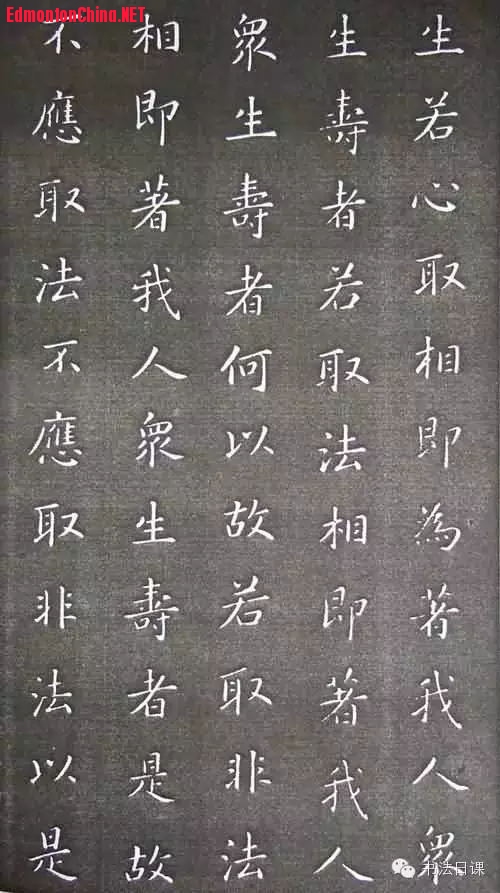 EdmontonChina.NET
生若心取相即為著我人眾
生壽者若取法相即著我人
眾生壽者何以故若取非法
相即著我人眾生壽者是故
不應取法不應取非法以是
书法日课